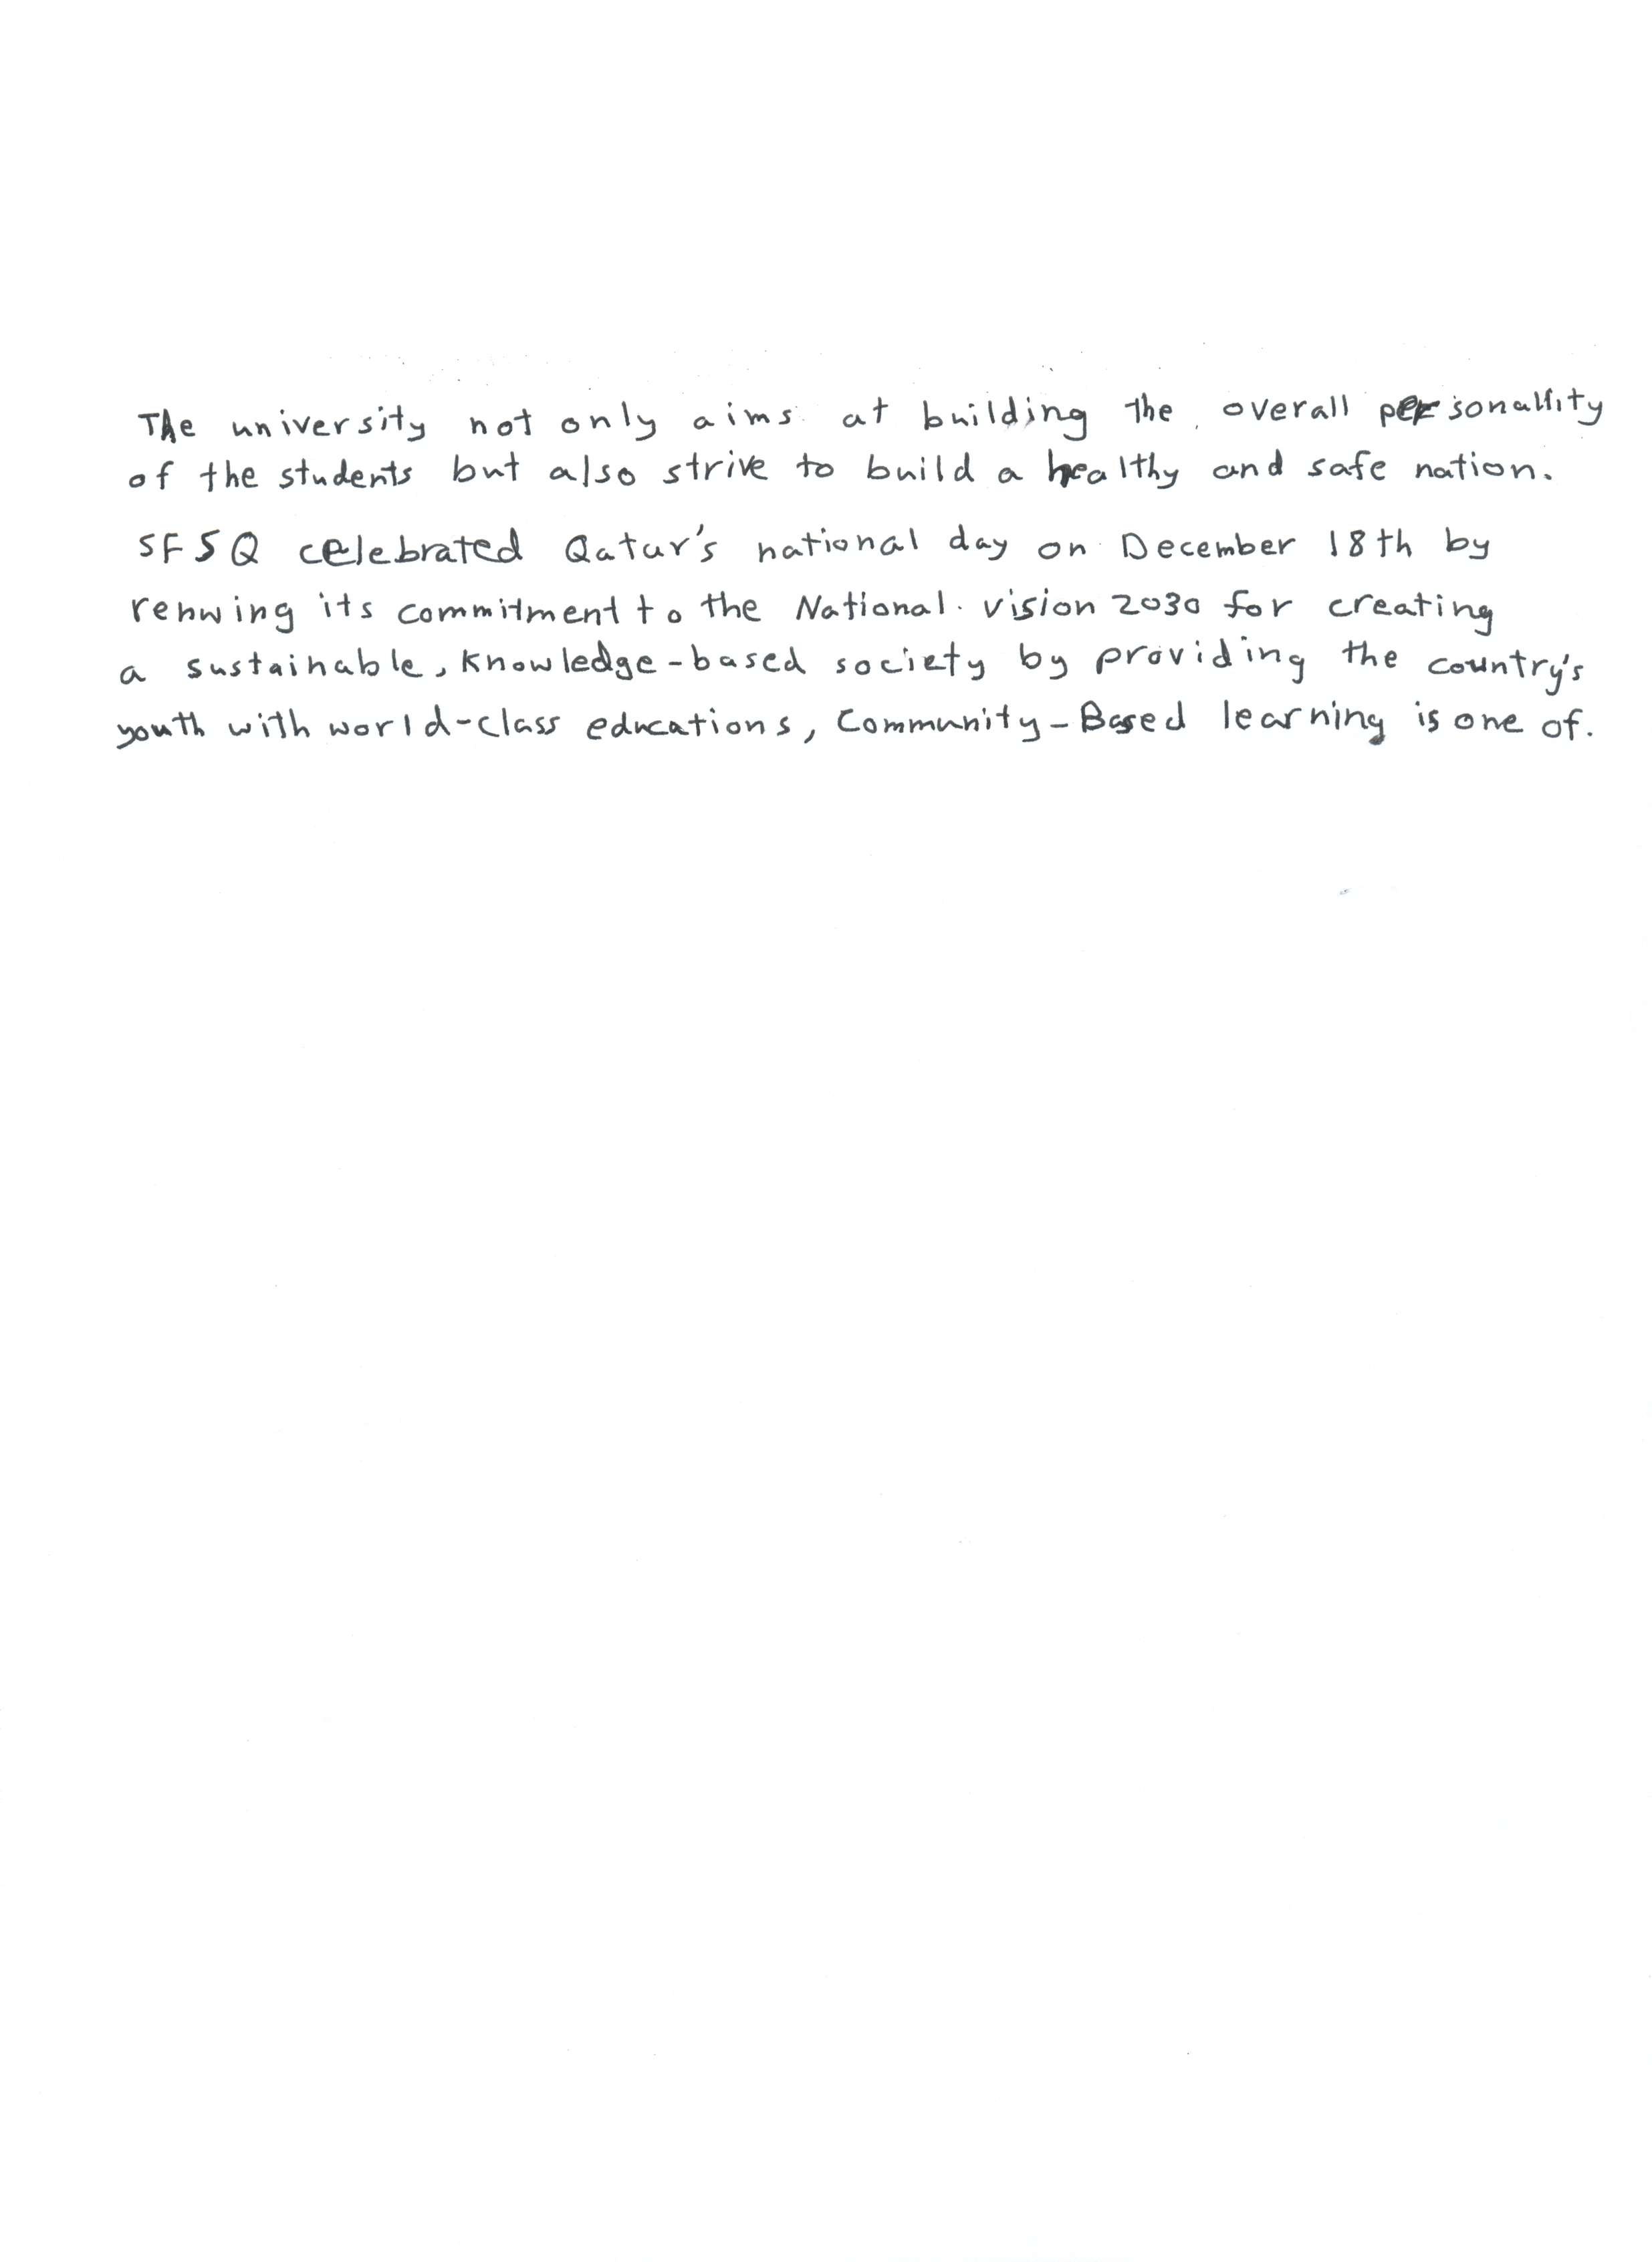 The university not only aims at building the overall personallity
of the students but also strive to build a healthy and safe nation.
SFSQ celebrated Qatar's national day on December 18th by
renwing its commitment to the National vision 2030 for creating
a sustainable, knowledge-based society by providing the country's
youth with world-class educations, Community-Based learning is one of.